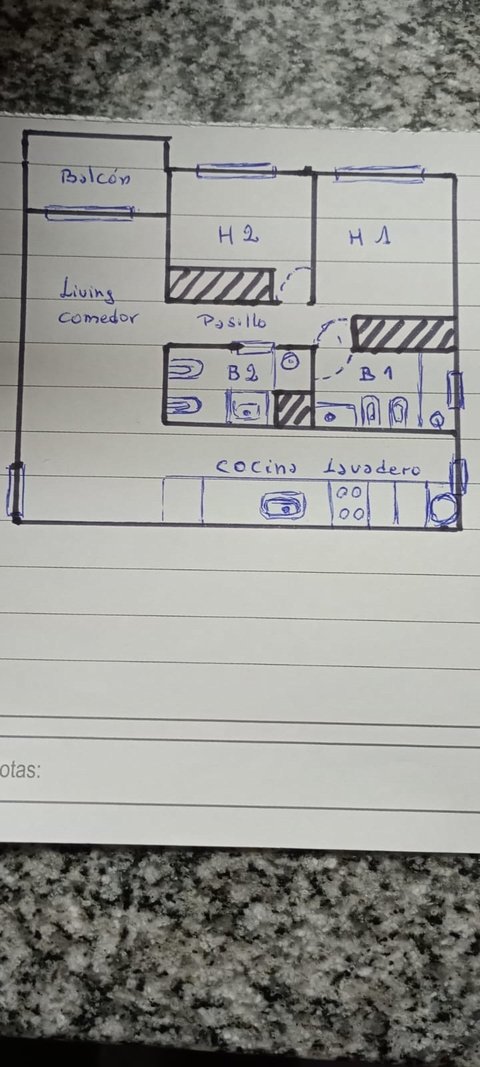 Balcón
H 2
H 1
Living
comedor
Pasillo
B2
B 1
COCINA Lavadero
otas: